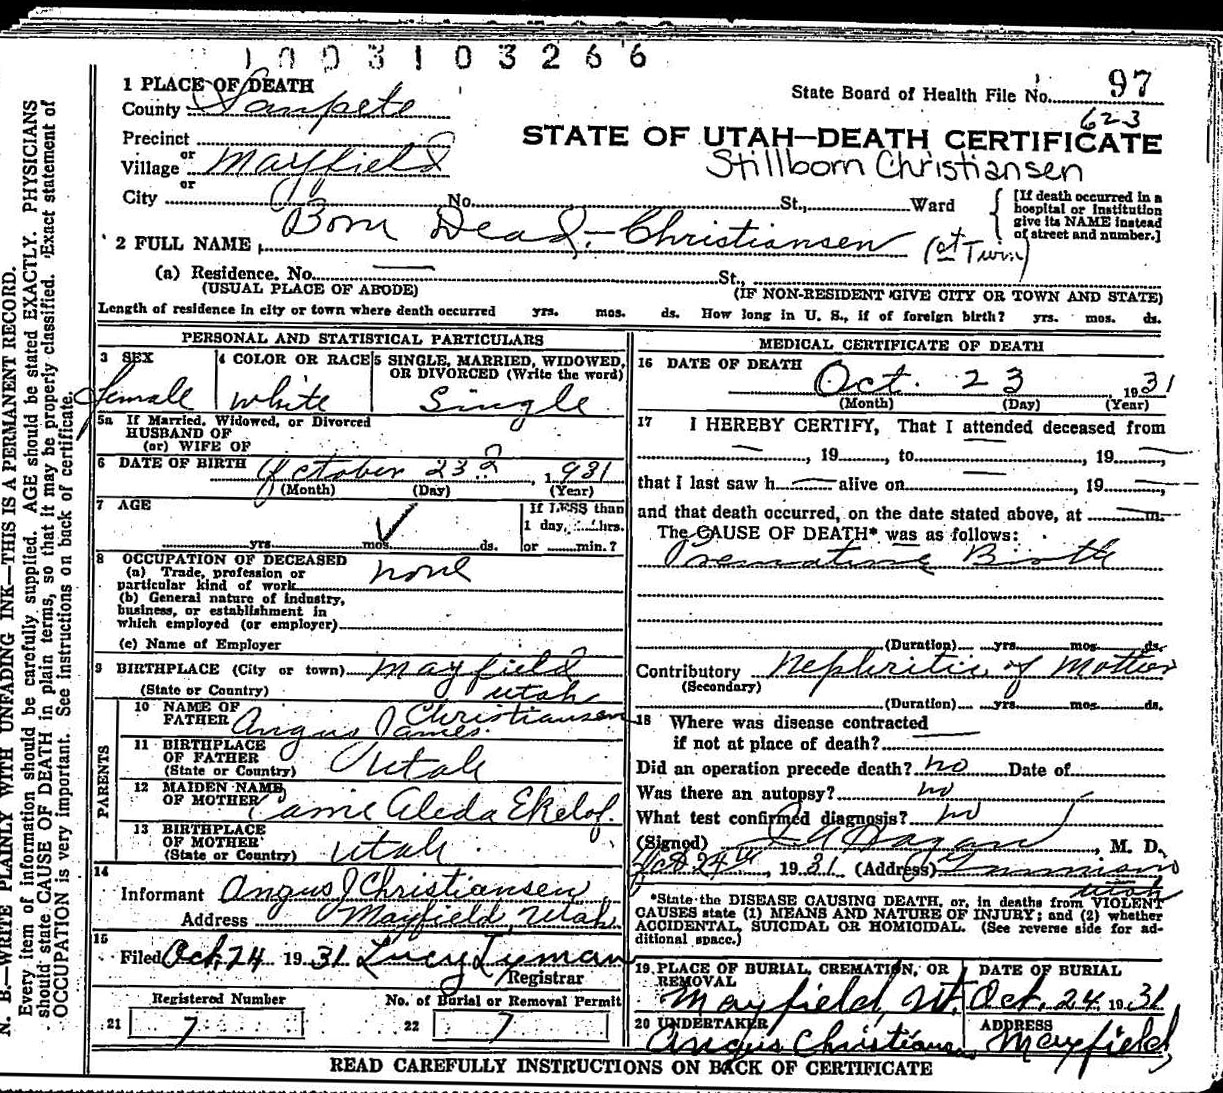 1003103266
1 PLACE OF DEATH
County Sanpete
State Board of Health File No. 97
623
Precinct
STATE OF UTAH—DEATH CERTIFICATE
or
Village Mayfield
Stillborn Christiansen
or
City No. St., Ward
[If death occurred in a
hospital or institution
give its NAME instead
of street and number.]
2 FULL NAME Born Dead - Christiansen (1st Twin)
(a) Residence. No. — St.,
(USUAL PLACE OF ABODE) (IF NON-RESIDENT GIVE CITY OR TOWN AND STATE)
Length of residence in city or town where death occurred yrs. mos. ds. How long in U. S., if of foreign birth? yrs. mos. ds.
PERSONAL AND STATISTICAL PARTICULARS
3 SEX
Female
4 COLOR OR RACE
White
5 SINGLE, MARRIED, WIDOWED,
OR DIVORCED (Write the word)
Single
5a If Married, Widowed, or Divorced
HUSBAND OF
(or) WIFE OF
6 DATE OF BIRTH October 23rd, 1931
(Month) (Day) (Year)
7 AGE
yrs. mos. ds.
If LESS than
1 day, hrs.
or min.?
8 OCCUPATION OF DECEASED
(a) Trade, profession or
particular kind of work none
(b) General nature of industry,
business, or establishment in
which employed (or employer)
(c) Name of Employer
9 BIRTHPLACE (City or town) Mayfield
(State or Country) Utah
PARENTS
10 NAME OF
FATHER Angus James Christiansen
11 BIRTHPLACE
OF FATHER
(State or Country) Utah
12 MAIDEN NAME
OF MOTHER Aleda Ekelof.
13 BIRTHPLACE
OF MOTHER
(State or Country) Utah
14
Informant Angus J Christiansen
Address Mayfield, Utah
15
Filed Oct. 24 1931 Lucy Lyman
Registrar
Registered Number
21 7
No. of Burial or Removal Permit
22 7
MEDICAL CERTIFICATE OF DEATH
16 DATE OF DEATH
Oct. 23 1931
(Month) (Day) (Year)
17 I HEREBY CERTIFY, That I attended deceased from
—, 19—, to —, 19—,
that I last saw h— alive on —, 19—,
and that death occurred, on the date stated above, at — m.
The CAUSE OF DEATH* was as follows:
Premature Birth
(Duration) yrs. mos. ds.
Contributory Nephritis of Mother
(Secondary)
(Duration) yrs. mos. ds.
18 Where was disease contracted
if not at place of death? —
Did an operation precede death? no Date of
Was there an autopsy? no
What test confirmed diagnosis? no
(Signed) Hagan, M. D.
Oct 24th, 1931 (Address) Gunnison
Utah
*State the DISEASE CAUSING DEATH, or, in deaths from VIOLENT
CAUSES state (1) MEANS AND NATURE OF INJURY; and (2) whether
ACCIDENTAL, SUICIDAL OR HOMICIDAL. (See reverse side for ad-
ditional space.)
19 PLACE OF BURIAL, CREMATION, OR
REMOVAL
Mayfield, Ut.
DATE OF BURIAL
Oct. 24 1931
20 UNDERTAKER
Angus Christiansen
ADDRESS
Mayfield,
READ CAREFULLY INSTRUCTIONS ON BACK OF CERTIFICATE
N. B.—WRITE PLAINLY WITH UNFADING INK—THIS IS A PERMANENT RECORD.
Every item of information should be carefully supplied. AGE should be stated EXACTLY. PHYSICIANS
should state CAUSE OF DEATH in plain terms, so that it may be properly classified. Exact statement of
OCCUPATION is very important. See instructions on back of certificate.